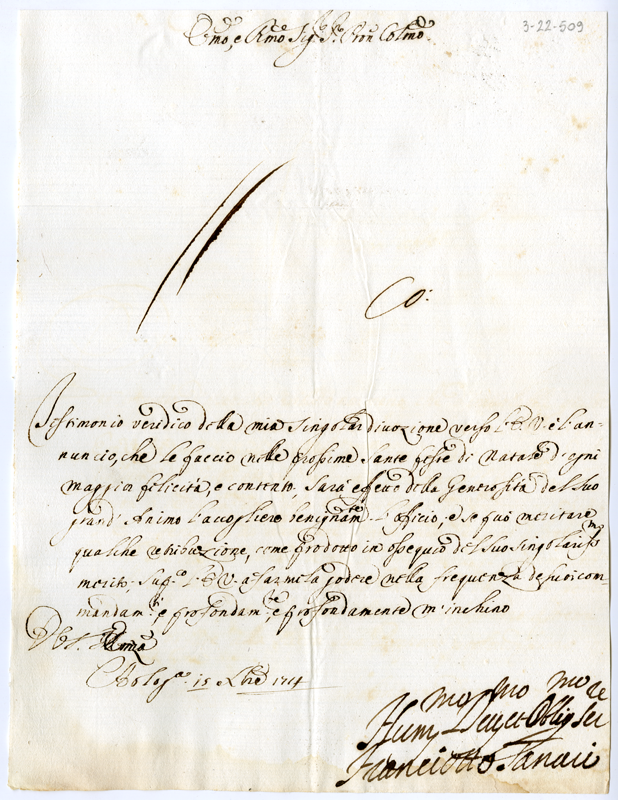 3-22-509
Emo, e Rmo Sig.re Sr. Pron Colmo
Co:
Testimonio veridico della mia singolar divozione verso l'E.V. è l'an-
nuncio, che le faccio nelle prossime sante feste di Natale d'ogni
maggior felicità, e contento; Sarà effetto della Generosità del suo
grand'Animo l'accogliere benignam.te l'officio, e se può meritare
qualche retribuzione, come prodotto in ossequio del suo singolariss.mo
merito, Sup.co l'E.V. a farmela godere nella frequenza de suoi com-
mandam.ti e profondam.te, e profondamente m'inchino
Di V. Emza
Bologa. 15 Xbre 1714
Hum.mo Devmo et Obligmo Sere
Franciotto Tanari